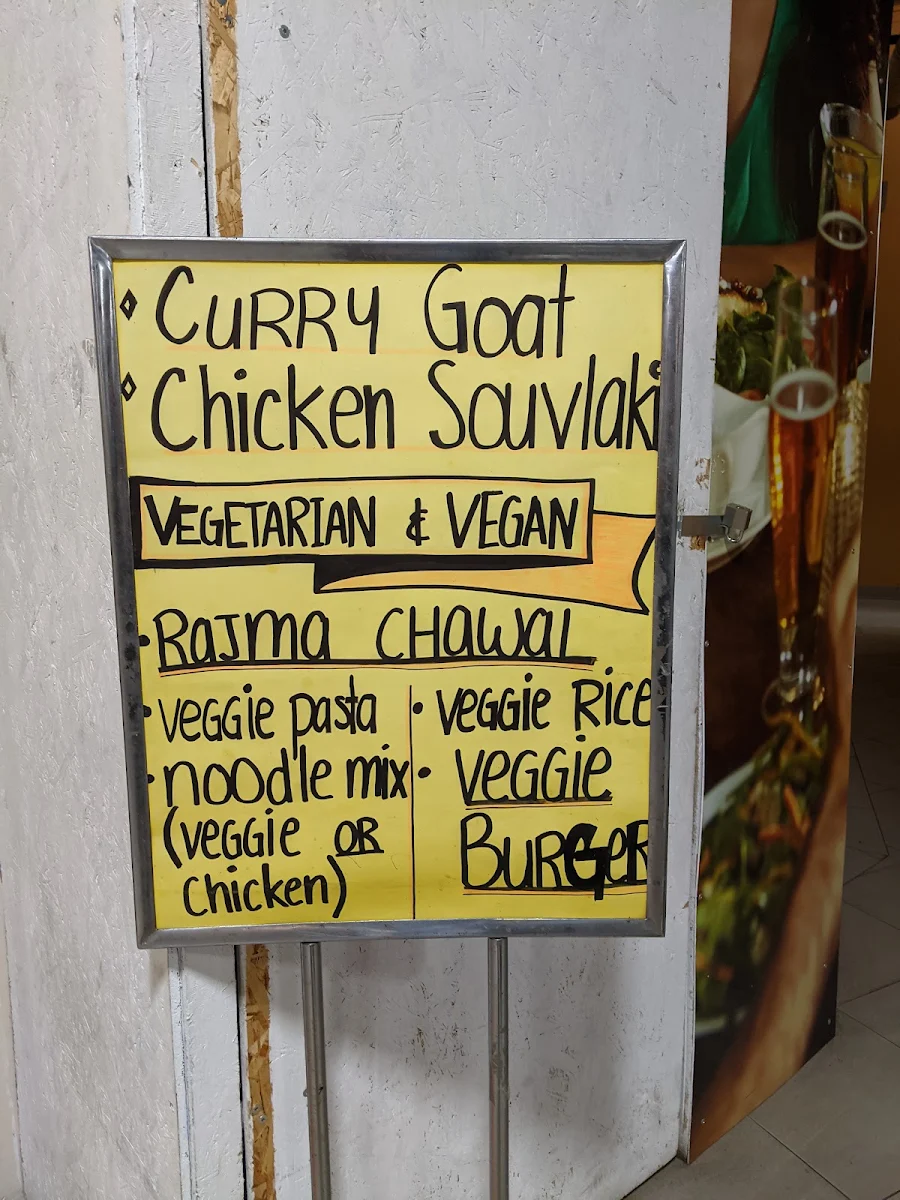 Curry Goat
Chicken Souvlaki
VEGETARIAN & VEGAN
Rajma CHawal
veggie pasta
noodle mix
(veggie OR
Chicken)
veggie Rice
veggie
BurGeR